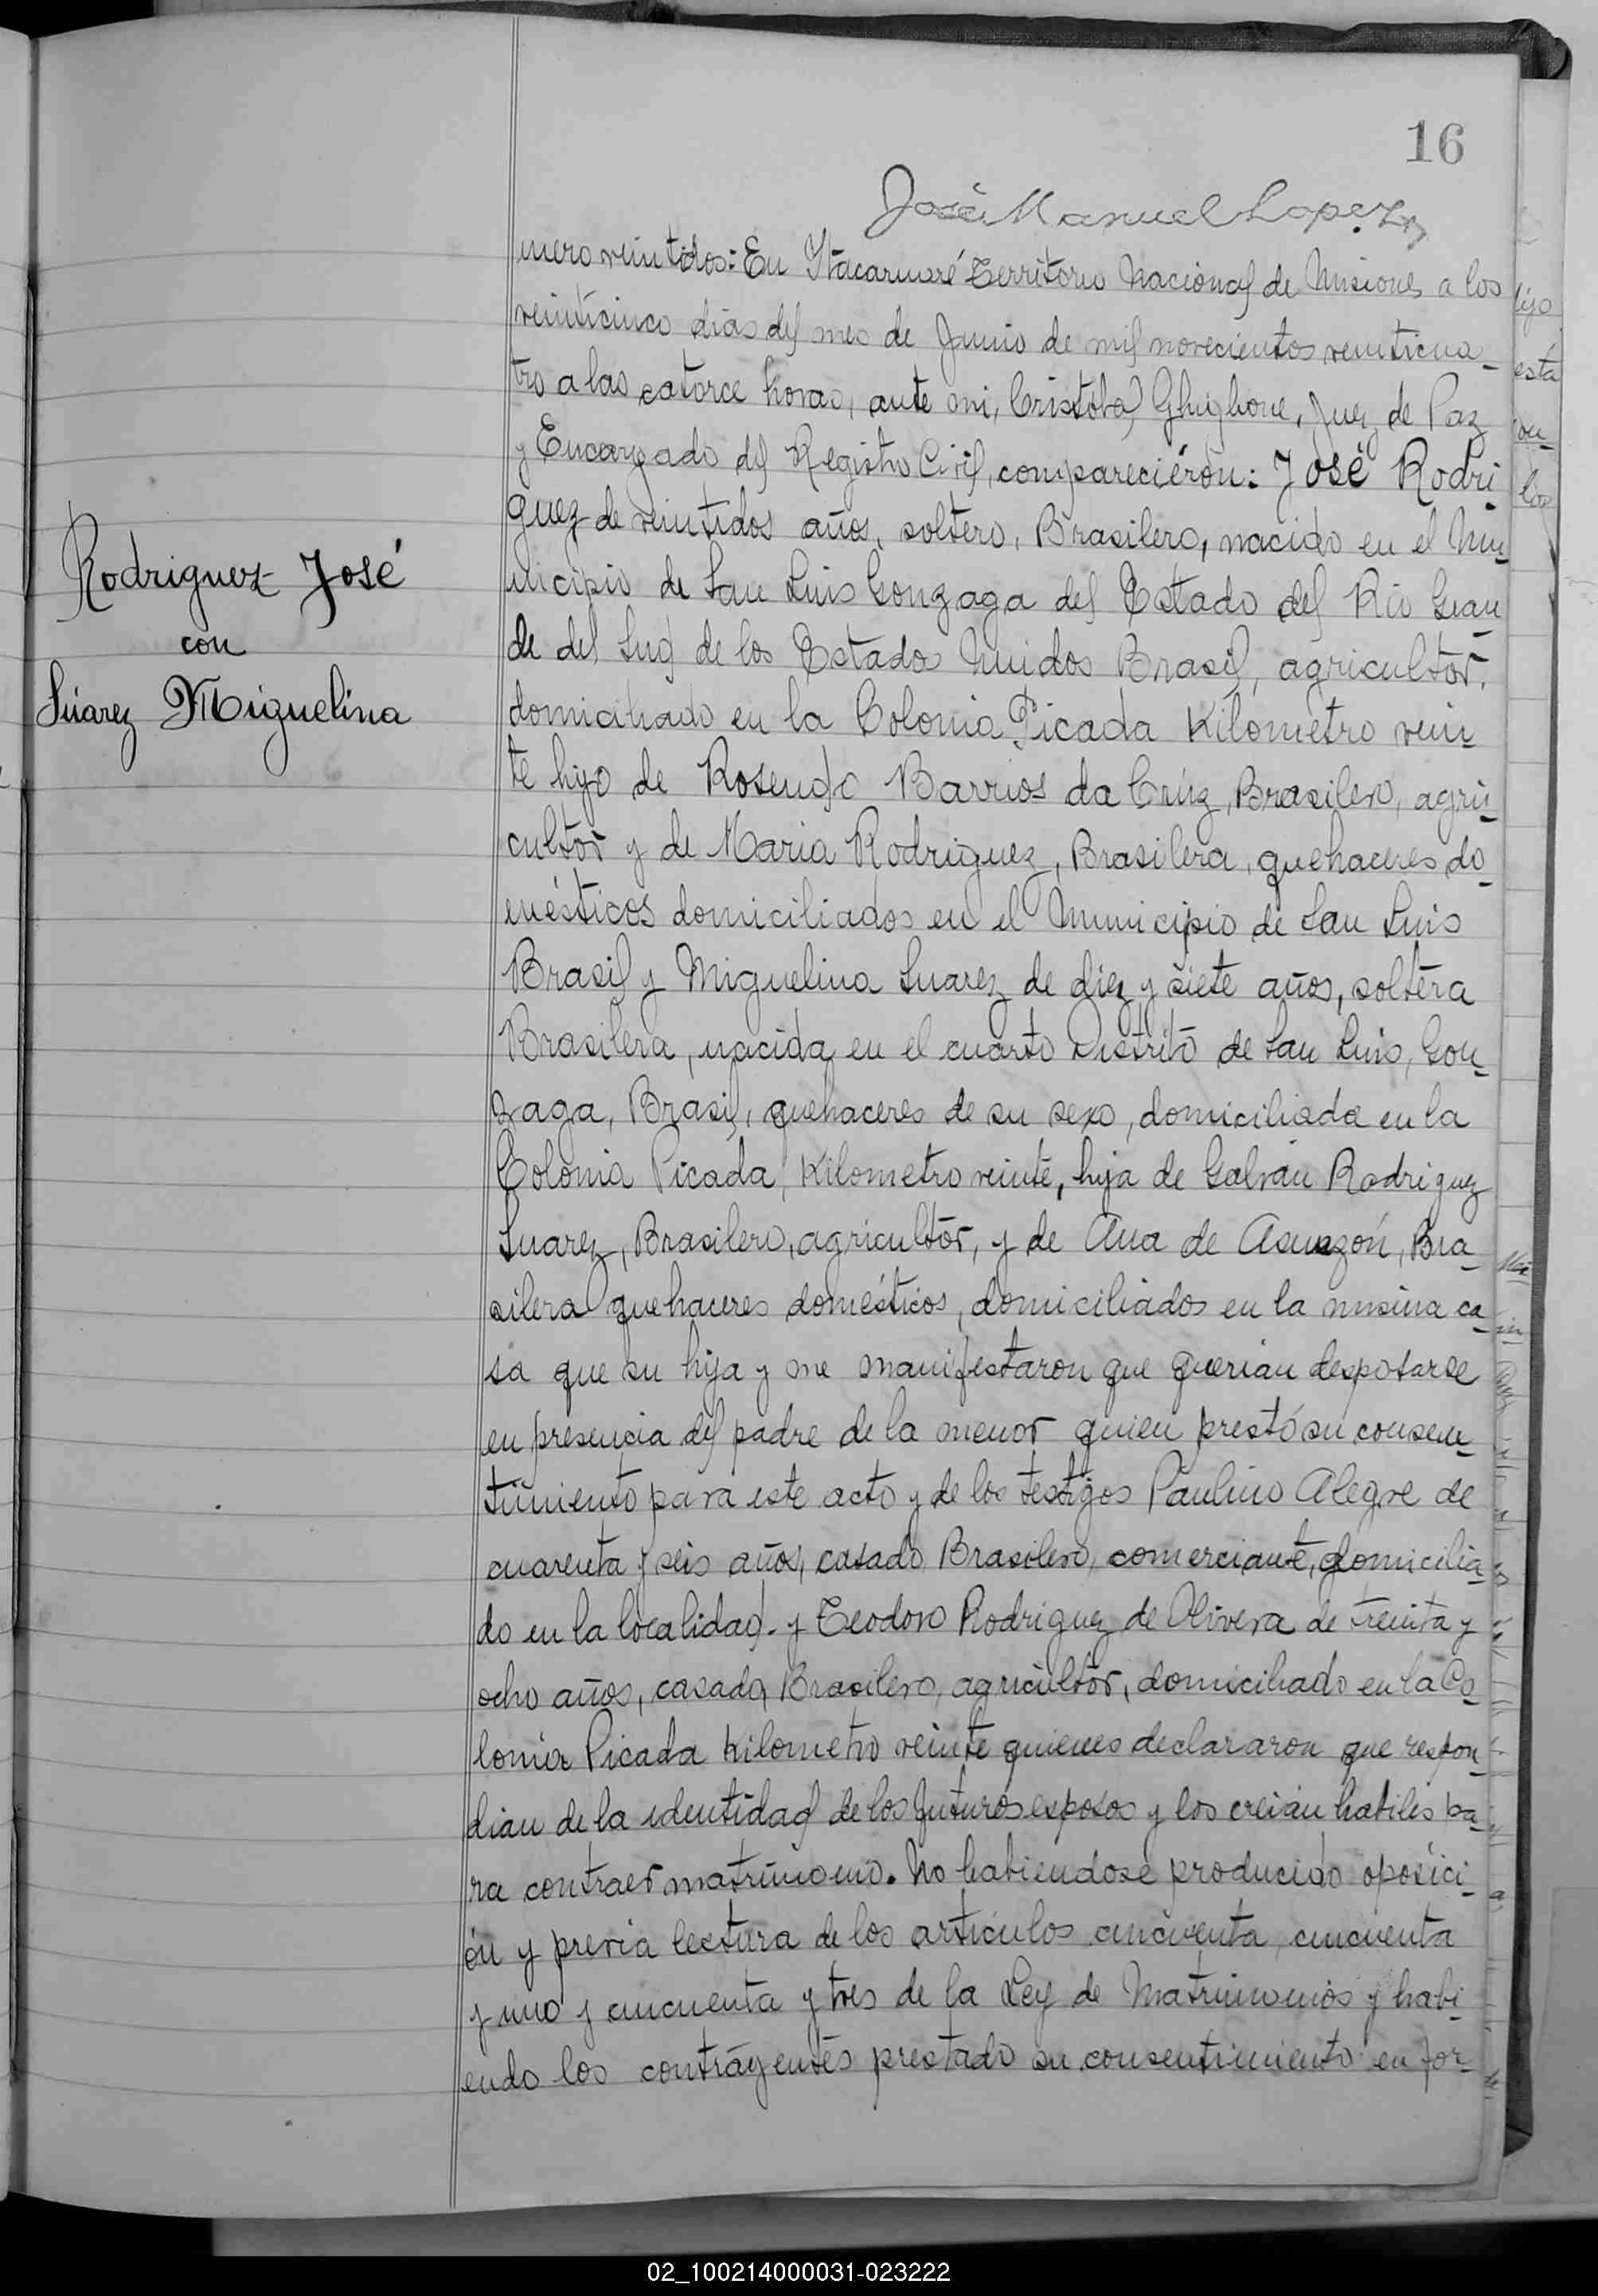 16
José Manuel Lopez
mero veintidos: En Itacaruaré Territorio Nacional de Misiones a los
veinticinco dias del mes de Junio de mil novecientos veinticua-
tro a las catorce horas, ante mi, Cristobal Ghighone, Juez de Paz
y Encargado del Registro Civil, compareciéron: José Rodri-
guez de veintidos años, soltero, Brasilero, nacido en el Mu-
nicipio de San Luis Gonzaga del Estado del Rio Gran
de del Sud de los Estados Unidos Brasil, agricultor,
domiciliado en la Colonia Picada Kilometro vein-
te hijo de Rosendo Barrios da Crúz, Brasilero, agri-
cultor y de Maria Rodriguez, Brasilera, quehaceres do-
mésticos domiciliados en el Municipio de San Luis
Brasil y Miguelina Suarez de diez y siete años, soltera
Brasilera, nacida en el cuarto Distrito de San Luis, Gon-
zaga, Brasil, quehaceres de su sexo, domiciliada en la
Colonia Picada, Kilometro veinte, hija de Galván Rodriguez
Suarez, Brasilero, agricultor, y de Ana de Asunzón, Bra-
silera quehaceres domésticos, domiciliados en la misma ca-
sa que su hija y me manifestaron que querian desposarse
en presencia del padre de la menor quien prestó su consen-
timiento para este acto y de los testigos Paulino Alegre de
cuarenta y seis años, casado Brasilero, comerciante, domicilia-
do en la localidad. y Teodoro Rodriguez de Olivera de treinta y
ocho años, casado, Brasilero, agricultor, domiciliado en la Co-
lonia Picada Kilometro veinte quienes declararon que respon-
dian de la identidad de los futuros esposos y los creian habiles pa-
ra contraer matrimonio. No habiendose producido oposici-
ón y previa lectura de los articulos cincuenta, cincuenta
y uno y cincuenta y tres de la Ley de Matrimonios y habi-
endo los contrayentes prestado su consentimiento en for-
Rodriguez José
con
Súarez Miguelina
02_100214000031-023222